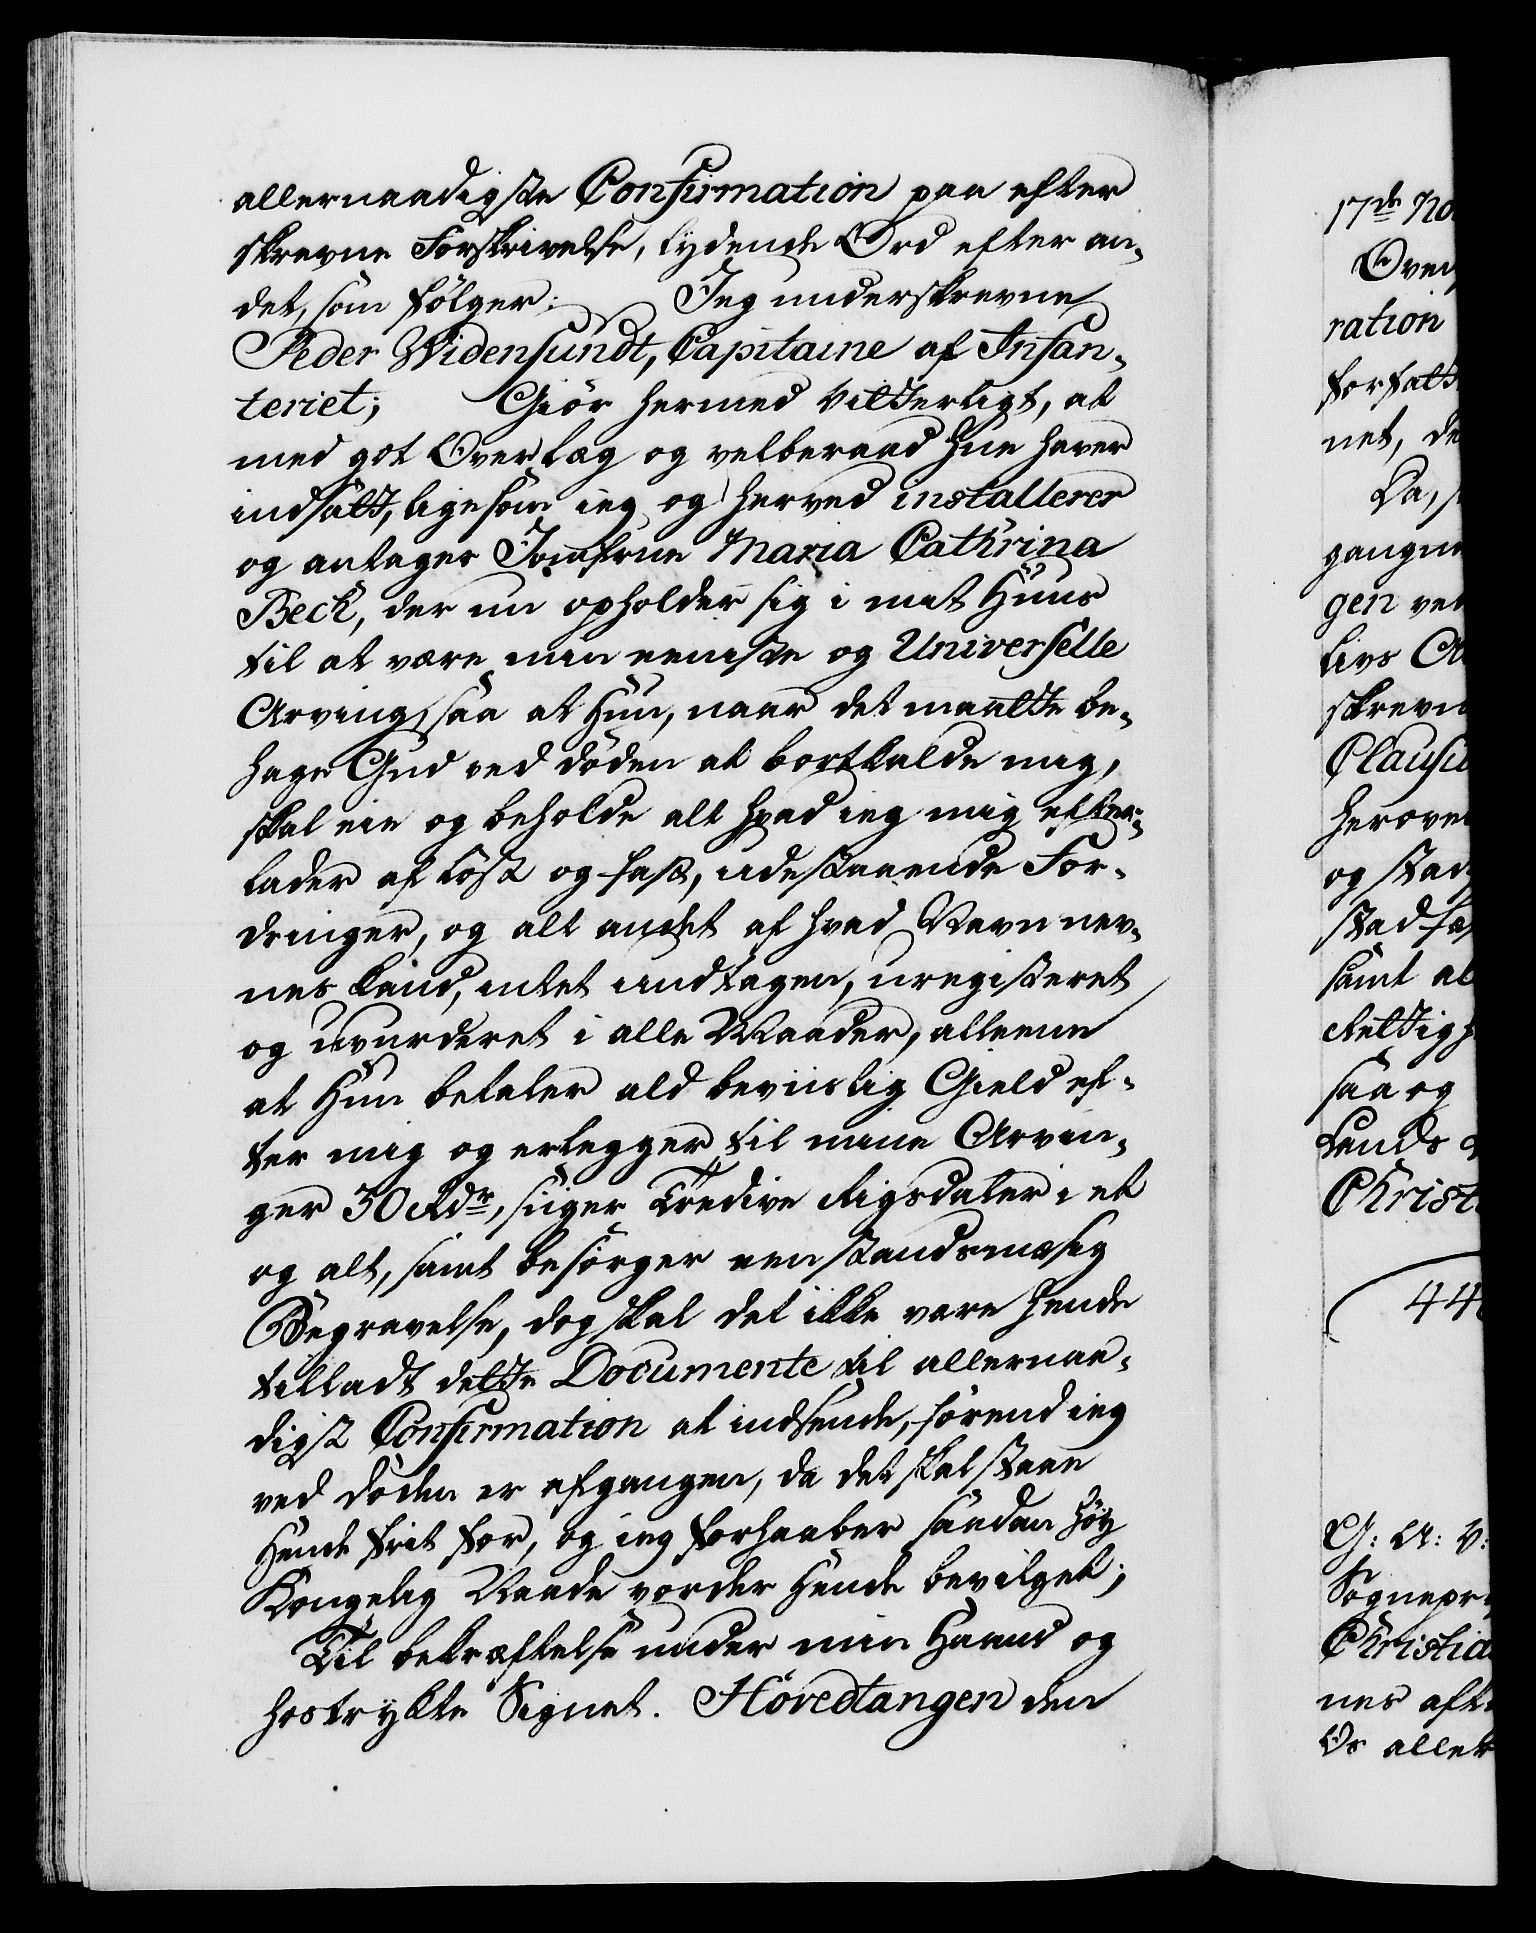 allernaadigste Confirmation paa efter
skrevne Forskrivelse, lydende Ord efter an-
det, som følger: Jeg underskrevne
Peder Widensundt, Capitaine af Infan-
teriet; Giör hermed Vitterligt, at
med got Overlæg og velberaad Hue haver
indsatt, ligesom ieg og herved installerer
og antager Jomfrue Maria Cathrina
Beck, der nu opholder sig i mit Huus
til at være min eeniste og Universelle
Arving, saa at Hun, naar det maatte be-
hage Gud ved döden at bortkalde mig,
skal eie og beholde alt hvad ieg mig efter-
lader af löst og fast, udestaaende For-
dringer, og alt andet af hvad Navn nev-
nes kand, intet undtagen, uregisteret
og uvurderet i alle Maader, alleene
at Hun betaler ald beviislig Gield ef-
ter mig og erlegger til mine Arvin-
ger 30 Rdr, siiger Tredive Rigsdaler i et
og alt, samt besörger een standsmæsig
Begravelse, dog skal det ikke være hende
tilladt dette Documente til allernaa-
digst Confirmation at indsende, förend ieg
ved döden er afgangen, da det skal staae
Hende frit for, og ieg forhaaber saadan höy
Kongelig Naade vorder Hende bevilget;
Til bekræftelse under min Haand og
hostrykte Signet. Hövedtangen den
17de No
Oven
ration
forfatt
net, de
Da, s
gangne
gen ved
livs A
skrevn
Clausu
herove
og stad
stadfæ
samt al
Rettigh
saa og
Lands
Christ
44
G: A: V:
Sognepr
Christia
nes aft
Os aller